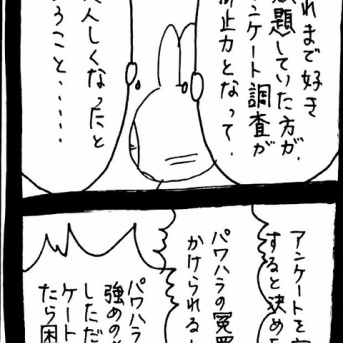 れまで好き
放題していた方が、
ンケート調査が
抑止力となって、
人しくなったと
うこと・・・・・
アンケートを
すると決めた
パワハラの冤罪
かけられる
パワハラ
強めの
しただ
ケート
たら困